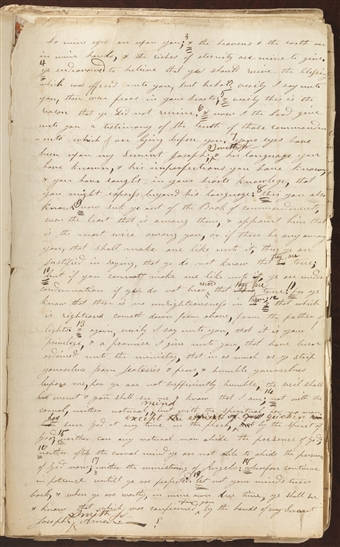 mine eyes are upon you; 4 & the heavens & the earth are
in mine hands, & the riches of eternity are mine to give.
4 ye endeavored to believe that ye should receive the blessing
which was offered unto you, but behold verily I say unto
you, there were fears in your hearts; 5 verily this is the
reason that ye did not receive; 6 now I the Lord give
unto you a testimony of the truth of those commandme
nts which are lying before you; 7 your eyes have
been upon my Servent Joseph Smith Jr. & his language you
have known; & his imperfections you have known
& you have sought in your hearts knowledge, that
you might express beyond his language; 8 this you also
know; seek ye out of the Book of commandments,
even the least that is among them, & appoint him that
is the most wise among you, or if there be any among
you, that shall make one like unto it, then ye are
justified in saying, that ye do not know that they are true;
10 but if you cannot make one like unto it, ye are under
condemnation if ye do not bear that they are true; 11 ye
know that there is no unrighteousness in them & that which
is righteous cometh down from above, from the father of
lights; 13 again, verily I say unto you, that it is your
privilege, & a promise I give unto you, that have been
ordained unto the ministry, that in as much as ye strip
yourselves from jealesies & fears, & humble yourselves
before me, for ye are not sufficiently humble, the veil shall
be rent & you shall see me & know that I am; 14 not with the
carnal, neither natural mind but with the spiritual;
for no man has seen God at any time in the flesh, except by the Spirit of
God; 16 neither can any natural man abide the presence of God
neither after the carnal mind ye are not able to abide the presence
of God now; 17 neither the ministering of Angels; 18 wherefore continue
in patience untill ye are perfected let not your minds turn
back, & when ye are worthy, in mine own due time, ye shall see
& know that which was confirmed upon you by the hands of my Servant
Joseph Smith Jr. Amen